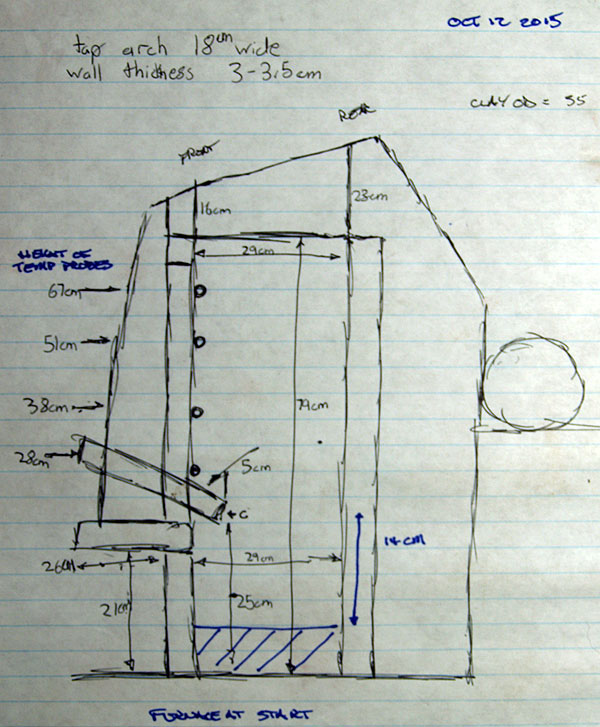 OCT 12 2015
tap arch 18cm wide
wall thickness 3-3.5cm
CLAY OD = 55
REAR
FRONT
16cm
23cm
HEIGHT OF
TEMP PROBES
29cm
67cm
51cm
38cm
79cm
28cm
5cm
14cm
26cm
29cm
21cm
25cm
FURNACE AT START